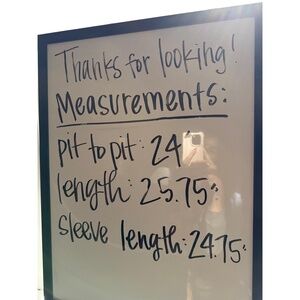 Thanks for looking!
Measurements:
pit to pit: 24"
length: 25.75"
sleeve length: 24.75"